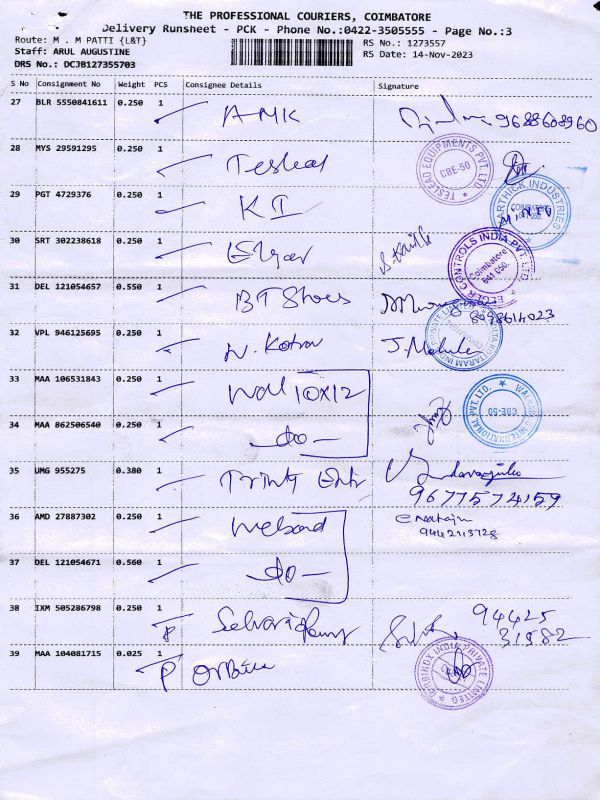 THE PROFESSIONAL COURIERS, COIMBATORE
Delivery Runsheet - PCK - Phone No.:0422-3505555 - Page No.:3
Route: M . M PATTI {L&T}
RS No.: 1273557
Staff: ARUL AUGUSTINE
RS Date: 14-Nov-2023
DRS No.: DCJB127355703
S No Consignment No Weight PCS Consignee Details Signature
27 BLR 5550841611 0.250 1 AMK 9688608960
28 MYS 29591295 0.250 1 Teslead
TESLEAD EQUIPMENTS PVT. LTD. CBE-50
29 PGT 4729376 0.250 1 KI
KARTHICK INDUSTRIES COIMBATORE 641 050.
30 SRT 302238618 0.250 1 Elgar
ELGER CONTROLS INDIA PVT LTD. Coimbatore 641 050.
31 DEL 121054657 0.550 1 BT Shoes 8098614023
32 VPL 946125695 0.250 1 N. Kotra
33 MAA 106531843 0.250 1 Wall 10x12
WALKAROO INTERNATIONAL PVT. LTD. CBE-50
34 MAA 862506540 0.250 1 do
35 UMG 955275 0.380 1 9677574159
36 AMD 27887302 0.250 1 9442213728
37 DEL 121054671 0.560 1 do
38 IXM 505286798 0.250 1 94425
31582
39 MAA 104081715 0.025 1
INDIA PRIVATE LIMITED